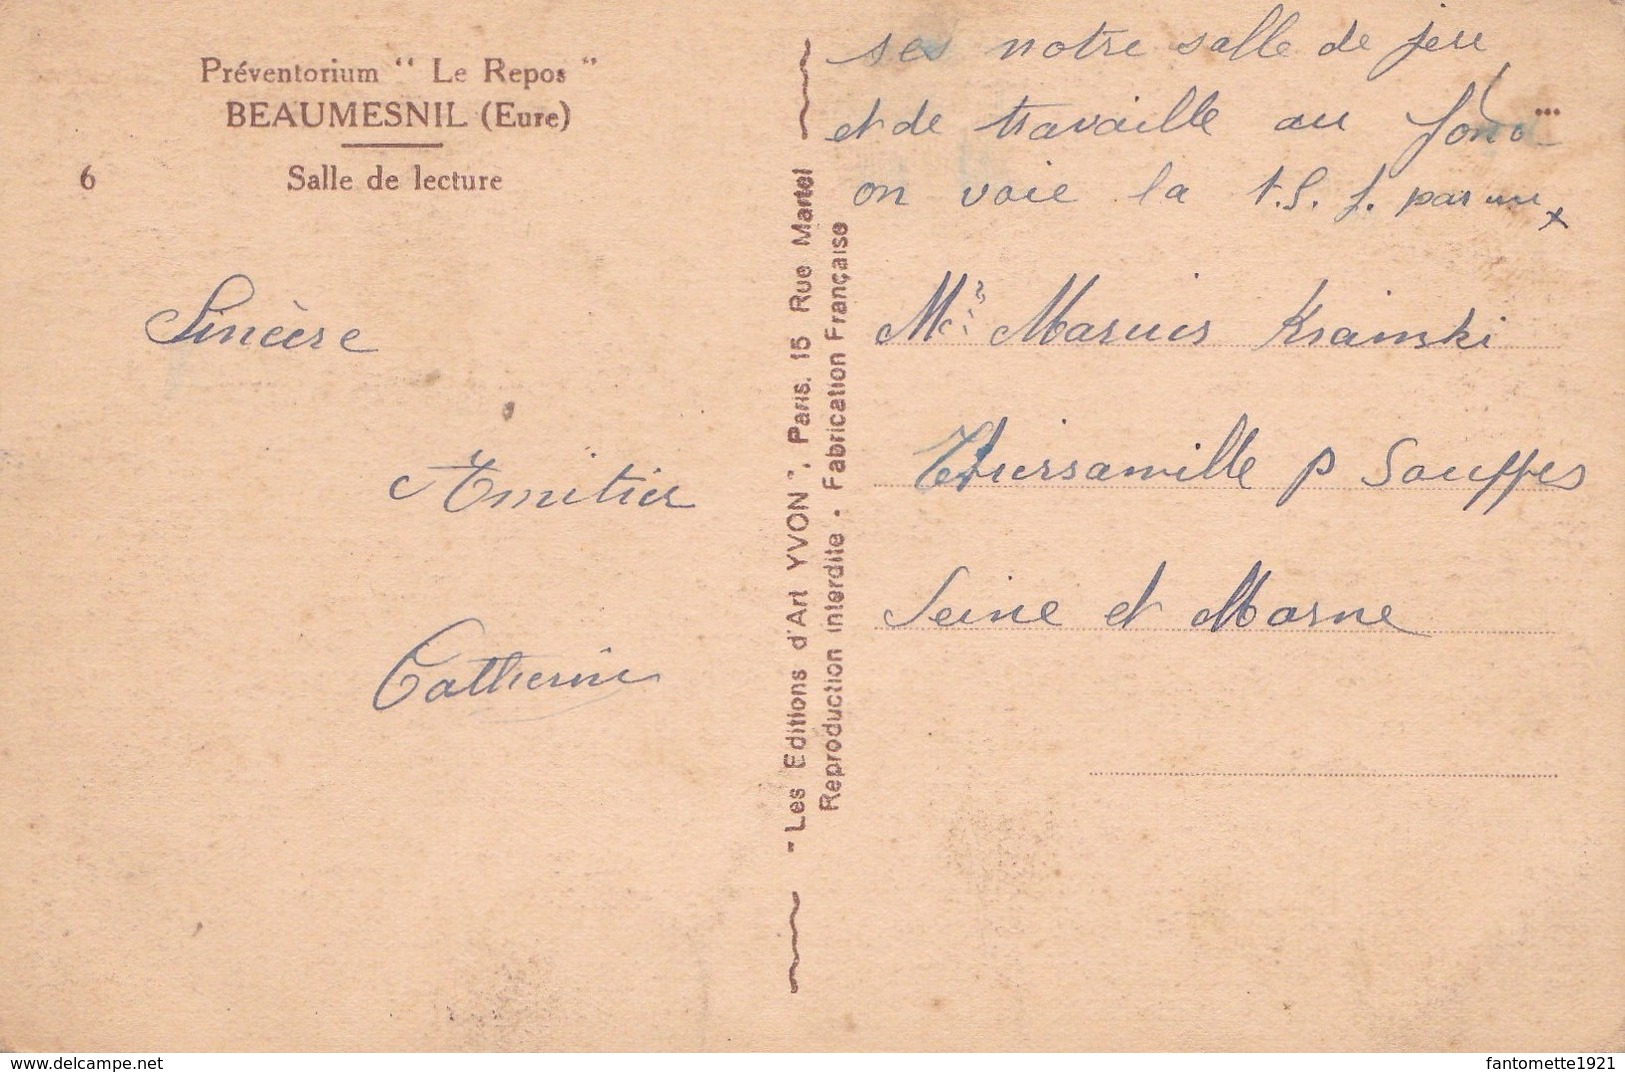 Préventorium “ Le Repos ”
BEAUMESNIL (Eure)
6
Salle de lecture
Sincère
Amitier
Catherine
"Les Editions d'Art YVON", Paris, 15 Rue Martel
Reproduction Interdite - Fabrication Française
ses notre salle de jeu
et de travaille au fond
on voie la t.S.f. par une x
Mr Marius Krainski
p Souppes
Seine et Marne
www.delcampe.net
fantomette1921